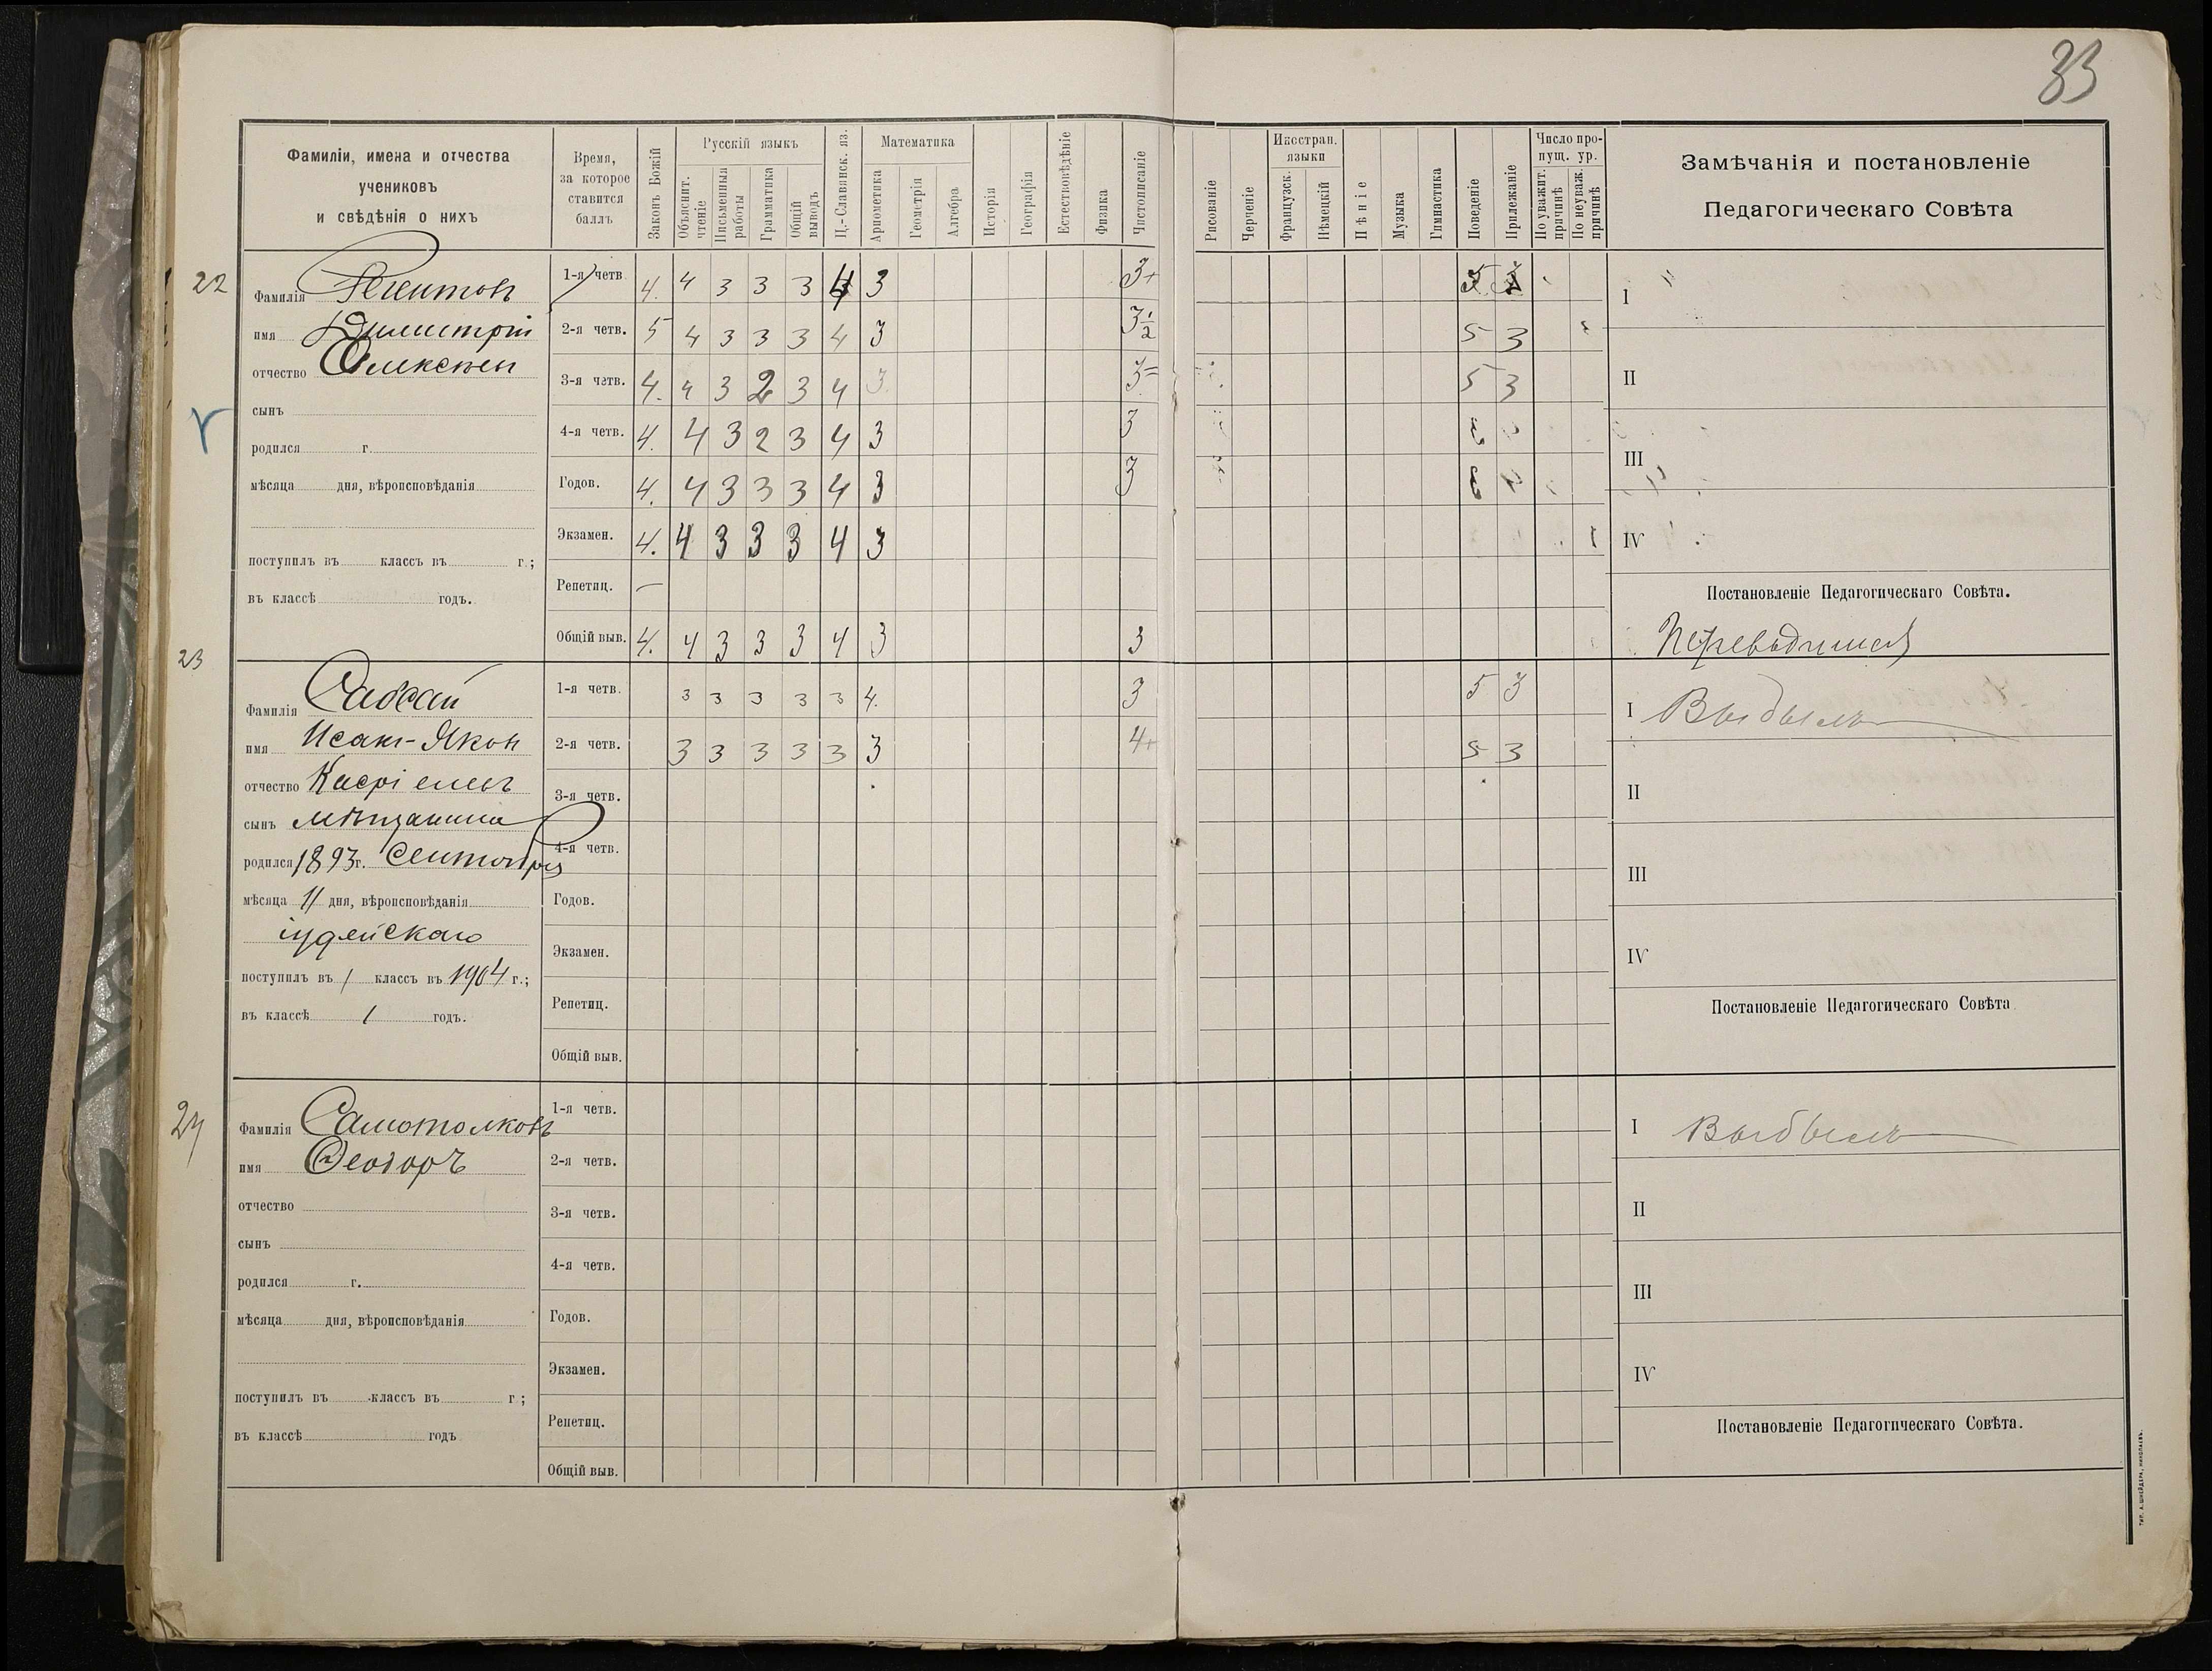 33
Фамиліи, имена и отчества
учениковъ
и свѣдѣнія о нихъ
Время,
за которое
ставится
баллъ
Законъ Божій
Русскій языкъ
Объяснит. чтеніе
Письменныя работы
Грамматика
Общій выводъ
Ц.-Славянск. яз.
Математика
Ариѳметика
Геометрія
Алгебра
Исторія
Географія
Естествовѣдѣніе
Физика
Чистописаніе
Рисованіе
Черченіе
Иностран. языки
Французск.
Нѣмецкій
Пѣніе
Музыка
Гимнастика
Поведеніе
Прилежаніе
Число пропущ. ур.
По уважит. причинѣ
По неуваж. причинѣ
Замѣчанія и постановленіе
Педагогическаго Совѣта
22
Фамилія
имя Димитрій
отчество Алексѣев
сынъ
родился г.
мѣсяца дня, вѣроисповѣданія
поступилъ въ классъ въ г.;
въ классѣ годъ.
1-я четв. 4. 4 3 3 3 4 3 3+
2-я четв. 5 4 3 3 3 4 3 3½ 5 3
3-я четв. 4. 4 3 2 3 4 3 3= 5 3
4-я четв. 4. 4 3 2 3 4 3 3
Годов. 4. 4 3 3 3 4 3 3
Экзамен. 4. 4 3 3 3 4 3
Репетиц. —
Общій выв. 4. 4 3 3 3 4 3 3
I
II
III
IV
Постановленіе Педагогическаго Совѣта.
Переводится
23
Фамилія
имя Исаак-Яков
отчество Касріелевъ
сынъ мѣщанина
родился 1893 г. Сентября
мѣсяца 11 дня, вѣроисповѣданія
іудейскаго
поступилъ въ 1 классъ въ 1904 г.;
въ классѣ 1 годъ.
1-я четв. 3 3 3 3 3 4. 3 5 3
2-я четв. 3 3 3 3 3 3 4+ 5 3
3-я четв.
4-я четв.
Годов.
Экзамен.
Репетиц.
Общій выв.
I Выбылъ
II
III
IV
Постановленіе Педагогическаго Совѣта
24
Фамилія Самотолковъ
имя Ѳеодоръ
отчество
сынъ
родился г.
мѣсяца дня, вѣроисповѣданія
поступилъ въ классъ въ г;
въ классѣ годъ
1-я четв.
2-я четв.
3-я четв.
4-я четв.
Годов.
Экзамен.
Репетиц.
Общій выв.
I Выбылъ
II
III
IV
Постановленіе Педагогическаго Совѣта.
ТИП. А. ШНЕЙДЕРА, НИКОЛАЕВЪ.